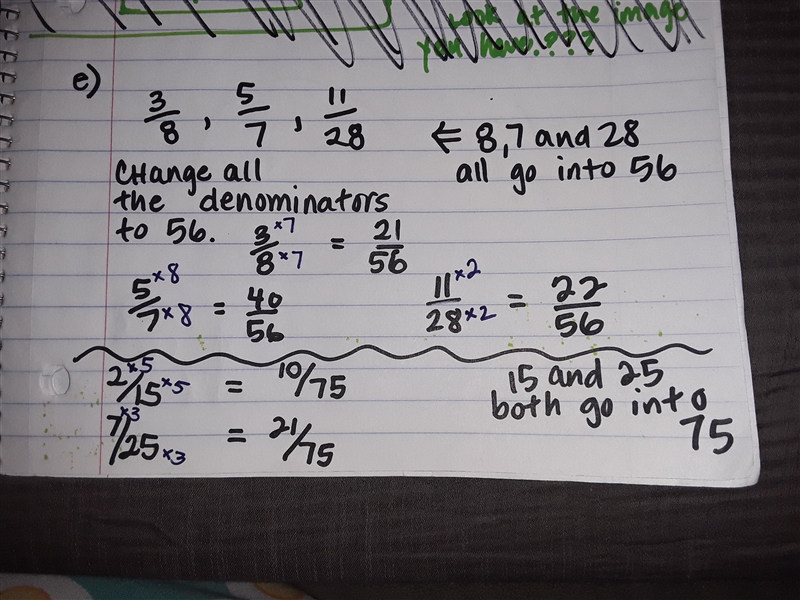 look at the image
you have????
e)
3/8, 5/7, 11/28
← 8,7 and 28
all go into 56
CHange all
the denominators
to 56.
3/8 ×7 ×7 = 21/56
5/7 ×8 ×8 = 40/56
11/28 ×2 ×2 = 22/56
2/15 ×5 ×5 = 10/75
7/25 ×3 ×3 = 21/75
15 and 25
both go into
75